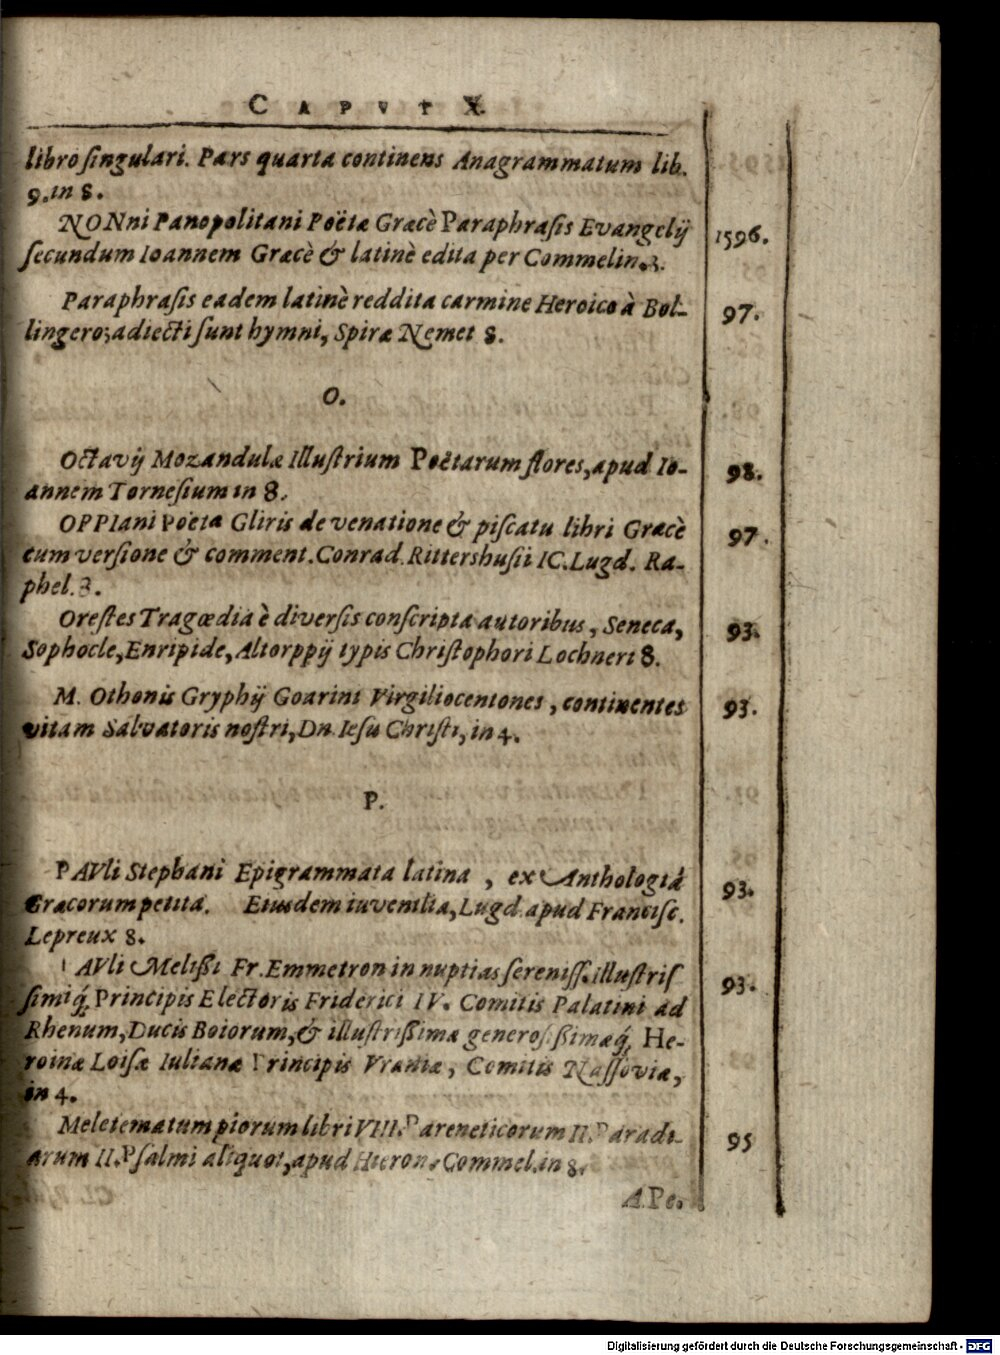 CAPVT X.
libro singulari. Pars quarta continens Anagrammatum lib.
9. in 8.
NONni Panopolitani Poëtæ Græcè Paraphrasis Evangelij
secundum Ioannem Græcè & latinè edita per Commelin. 8. 1596.
Paraphrasis eadem latinè reddita carmine Heroico à Bol-
lingero; adiecti sunt hymni, Spiræ Nemet 8. 97.
O.
Octavij Mozandulæ Illustrium Poëtarum flores, apud Io-
annem Tornesium in 8. 98.
OPPIani Poëta Gliris de venatione & piscatu libri Græcè
cum versione & comment. Conrad. Rittershusii IC. Lugd. Ra-
phel. 8. 97.
Orestes Tragœdia è diversis conscripta autoribus, Seneca,
Sophocle, Enripide, Altorppij typis Christophori Lochneri 8. 93.
M. Othonis Gryphij Goarini Virgiliocentones, continentes
vitam Salvatoris nostri, Dn. Iesu Christi, in 4. 93.
P.
PAVli Stephani Epigrammata latina, ex Anthologiâ
Græcorum petita. Eiusdem iuvenilia, Lugd. apud Francisc.
Lepreux 8. 93.
PAVli Melißi Fr. Emmetron in nuptias sereniss. Illustris
simiq́; Principis Electoris Friderici IV. Comitis Palatini ad
Rhenum, Ducis Boiorum, & illustrißimæ generosißimæq́; He-
roinæ Loisæ Iulianæ Principis Vraniæ, Comitis Nassoviæ,
in 4. 93.
Meletematum piorum libri VIII. Pareneticorum II. Paradi-
arum II. Psalmi aliquot, apud Hieron. Commel. in 8. 95
A. Pe.
Digitalisierung gefördert durch die Deutsche Forschungsgemeinschaft - DFG